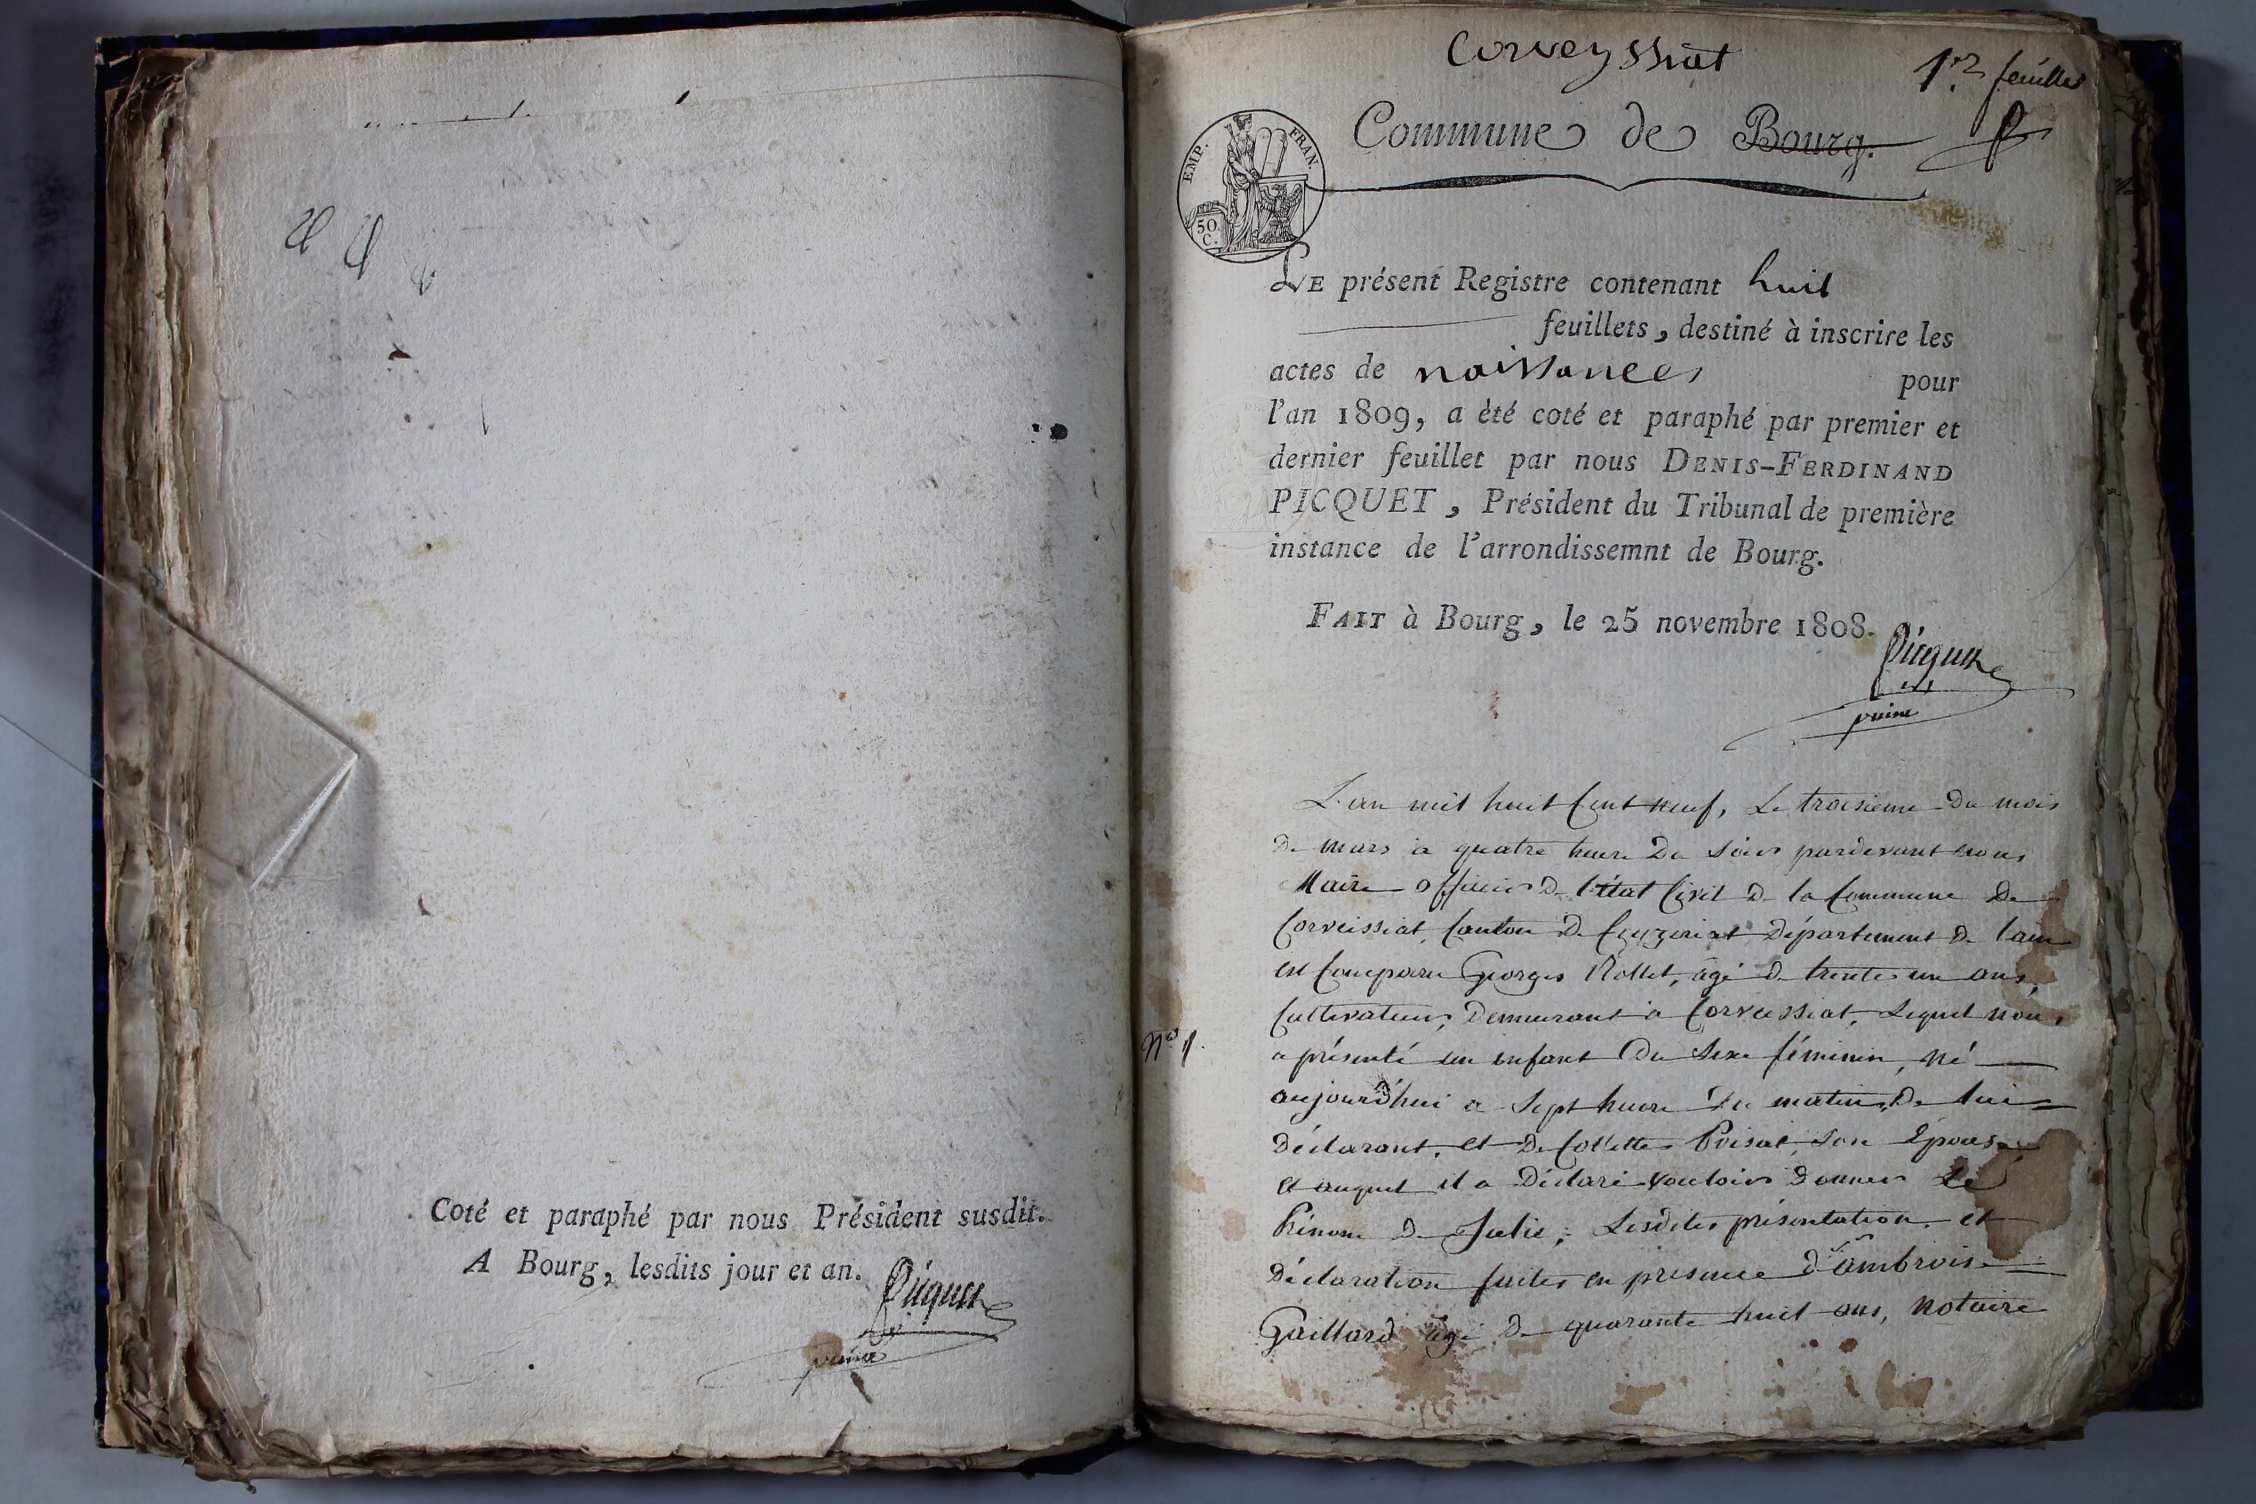 Coté et paraphé par nous Président susdit.
A Bourg, lesdits jour et an.
Picquet
Corveyssiat
1er feuillet
Commune de Bourg.
EMP. FRAN
50.
C.
LE présent Registre contenant huit
feuillets, destiné à inscrire les
actes de naissances pour
l'an 1809, a èté coté et paraphé par premier et
dernier feuillet par nous DENIS-FERDINAND
PICQUET, Président du Tribunal de première
instance de l'arrondissemnt de Bourg.
FAIT à Bourg, le 25 novembre 1808.
Picquet
L'an mil huit Cent neuf, Le troisieme Du mois
De mars à quatre heure Du Soir pardevant nous
Maire officier De l'état Civil De la Commune De
Corveissiat, Canton De Ceyzeriat Département De l'ain
est Comparu Georges Nollet, âgé De trente un ans,
Cultivateur, Demeurant à Corveissiat, Lequel nous
N° 1.
a présenté un enfant Du Sexe féminin, né
aujourd'hui a Sept heure Du matin, De lui
Déclarant, et De Collette Poisat, Son Épouse
et auquel il a Déclaré vouloir Donner Le
Prénom De Julie; Lesdites présentation et
Déclaration faites en presence d'ambroise
Gaillard âgé De quarante huit ans, Notaire